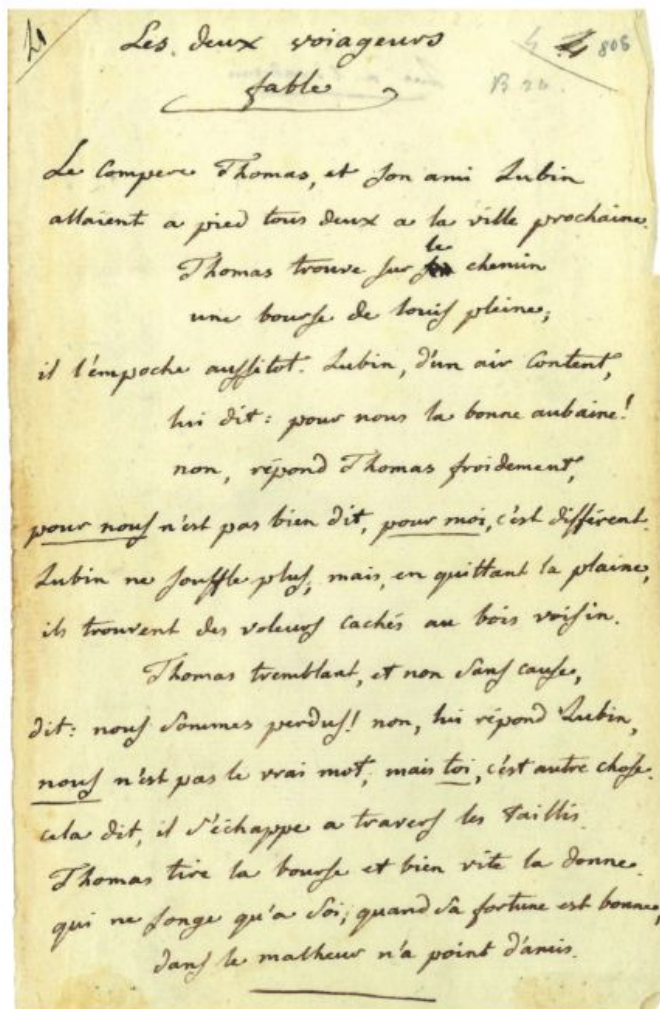 21
Les deux voiageurs
fable
4 808
B 26.
Le compere Thomas, et son ami Lubin
allaient a pied tous deux a la ville prochaine.
Thomas trouve sur le chemin
une bourse de louis pleine;
il l'empoche aussitot. Lubin, d'un air content,
lui dit: pour nous la bonne aubaine!
non, répond Thomas froidement,
pour nous n'est pas bien dit, pour moi, c'est différent.
Lubin ne souffle plus; mais, en quittant la plaine,
ils trouvent des voleurs cachés au bois voisin.
Thomas tremblant, et non sans cause,
dit: nous sommes perdus! non, lui répond Lubin,
nous n'est pas le vrai mot; mais toi, c'est autre chose.
cela dit, il s'échappe a travers les taillis.
Thomas tire la bourse et bien vite la donne.
qui ne songe qu'a soi, quand sa fortune est bonne,
dans le malheur n'a point d'amis.